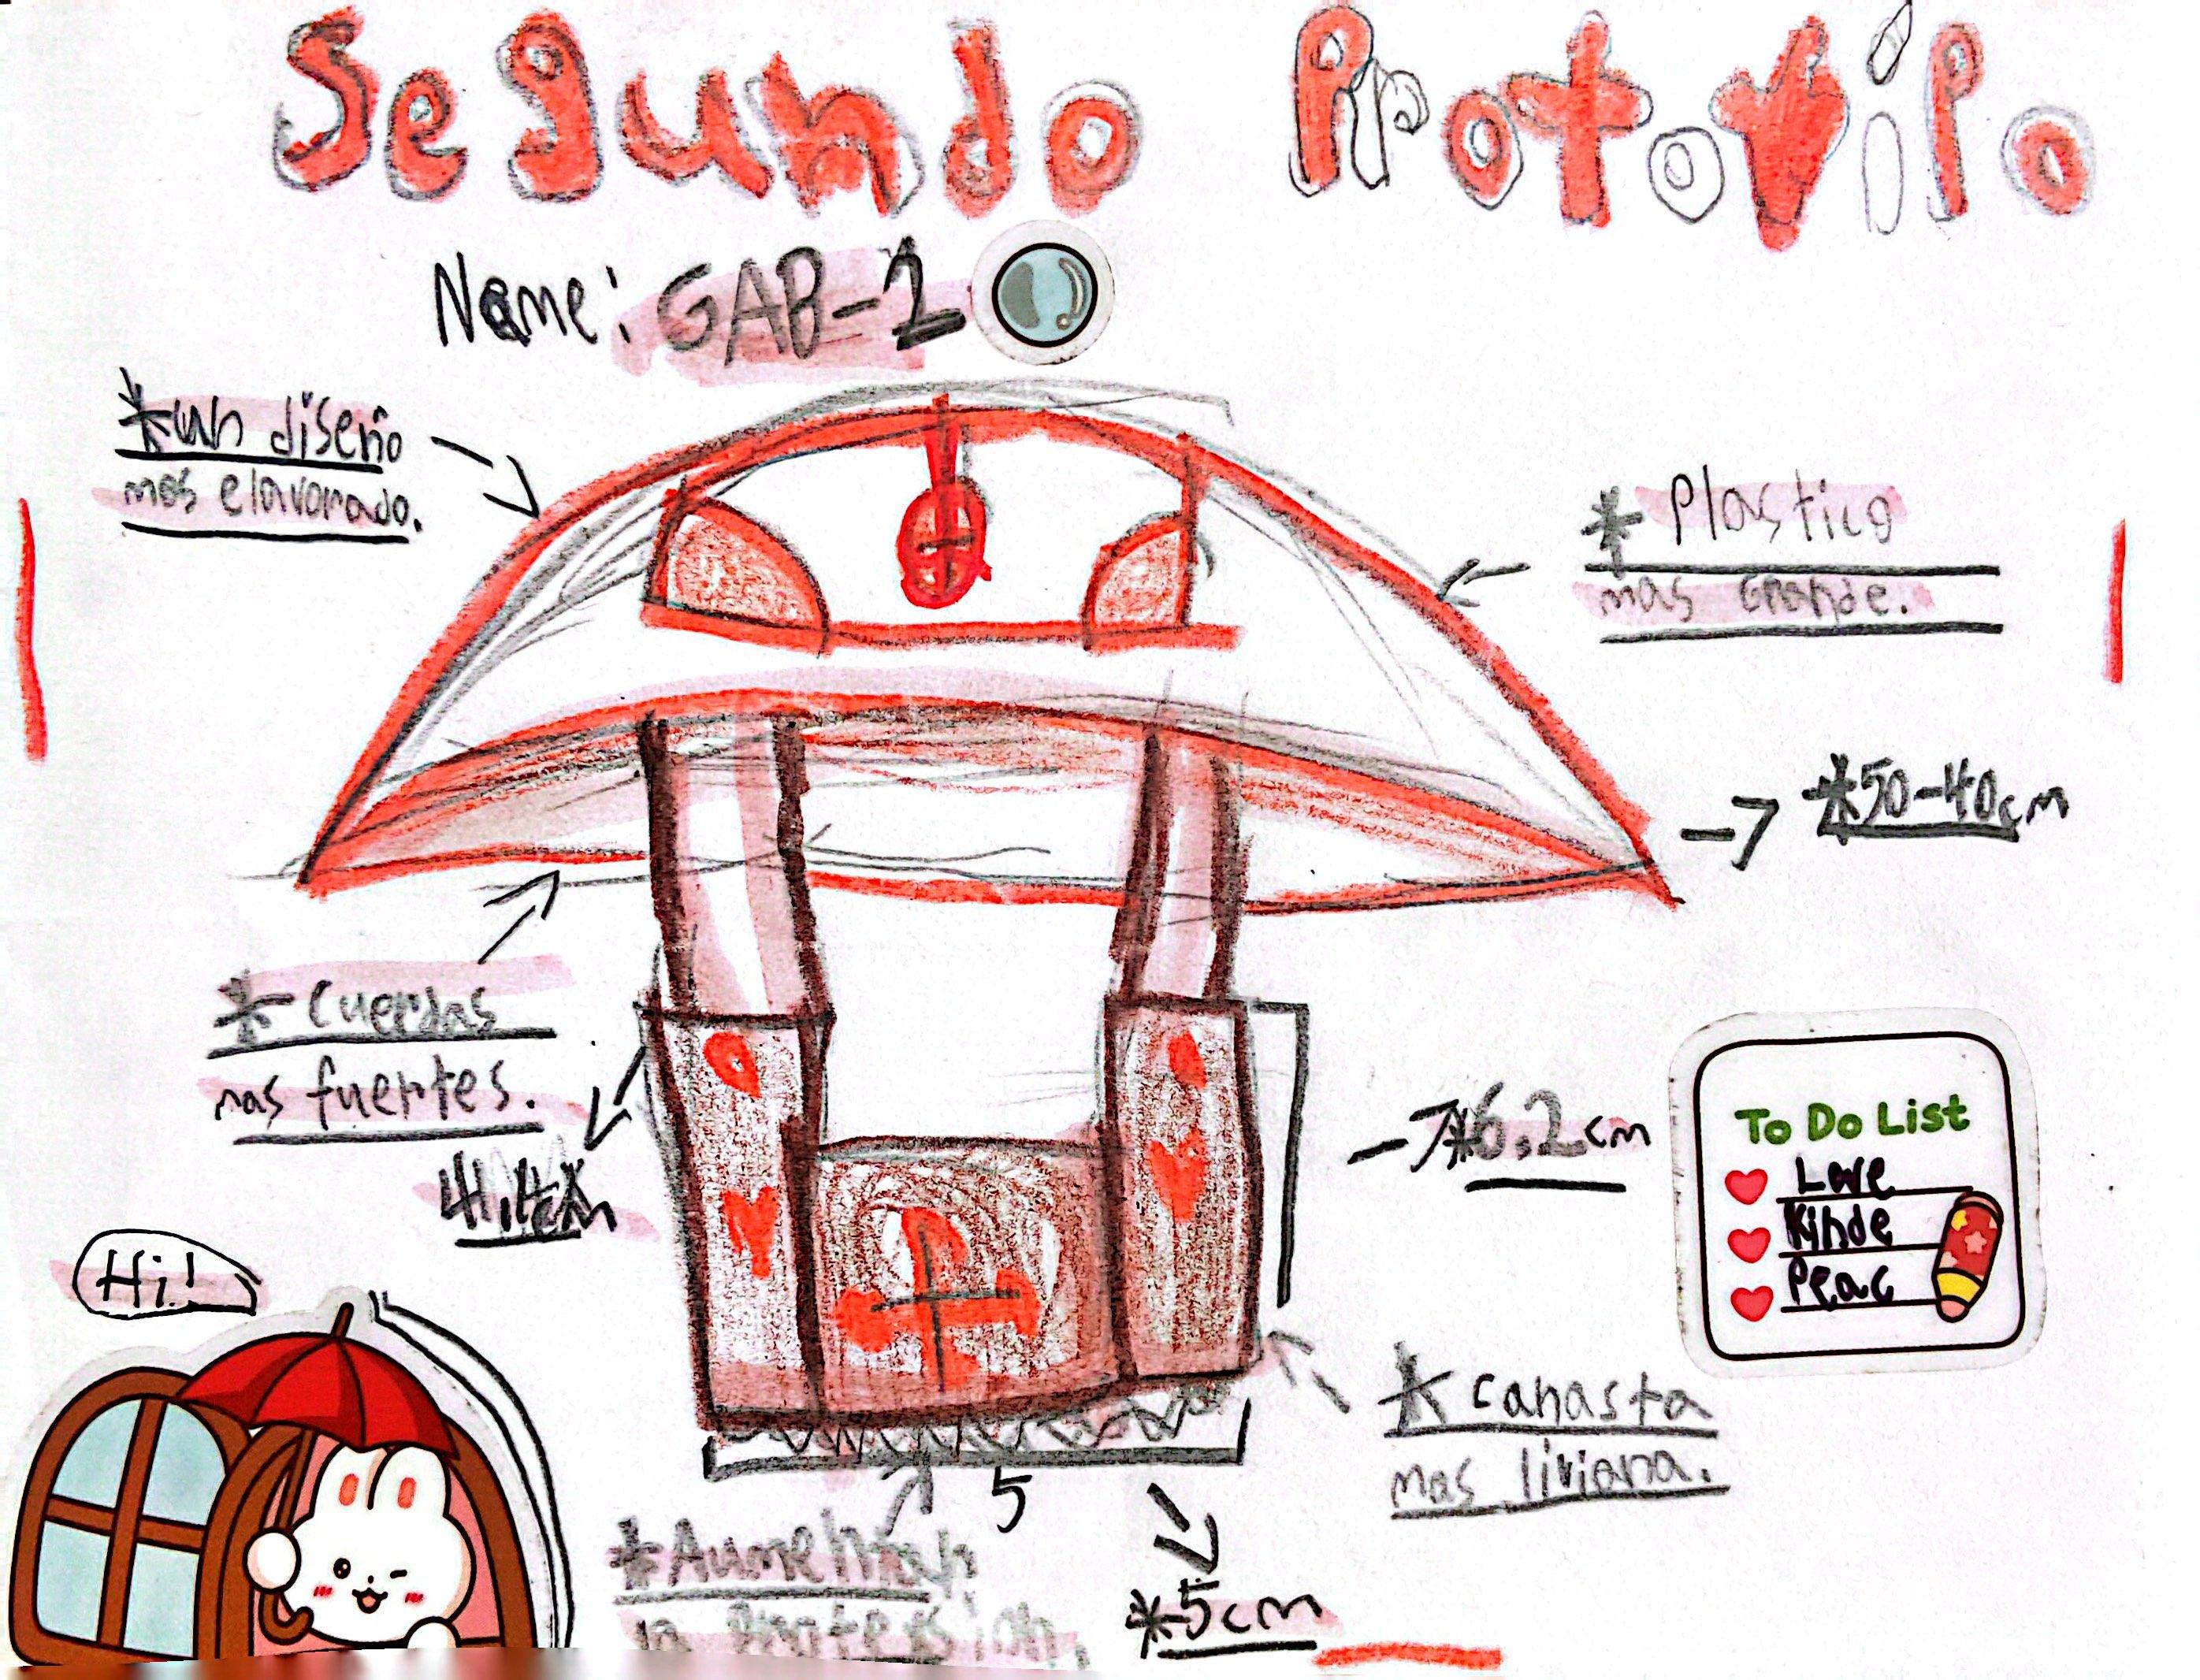 Segundo Prototipo
Name: GAB-1
*un diseño
mas elavorado.
* Plastico
mas Grande.
*50-40cm
* cuerdas
mas fuertes.
*6.2cm
To Do List
Love
Kinde
Peac
Hi!
* canasta
mas liviana.
5
*Aumentar
la
*5cm